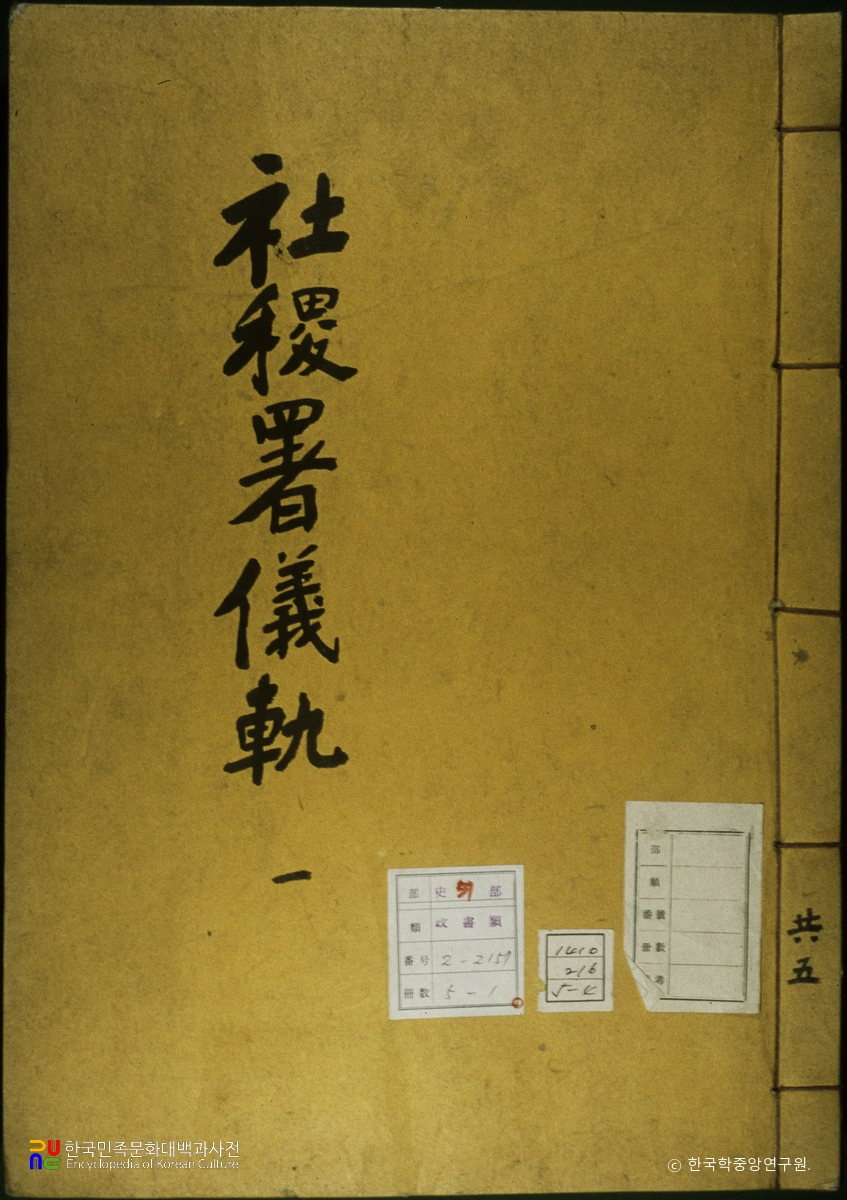 社稷署儀軌 一
共五
部 史 部
類 政書類
番号 2-2157
冊数 5-1
1410
216
5-4
部
類
番號
冊數
考
한국민족문화대백과사전
Encyclopedia of Korean Culture
© 한국학중앙연구원.